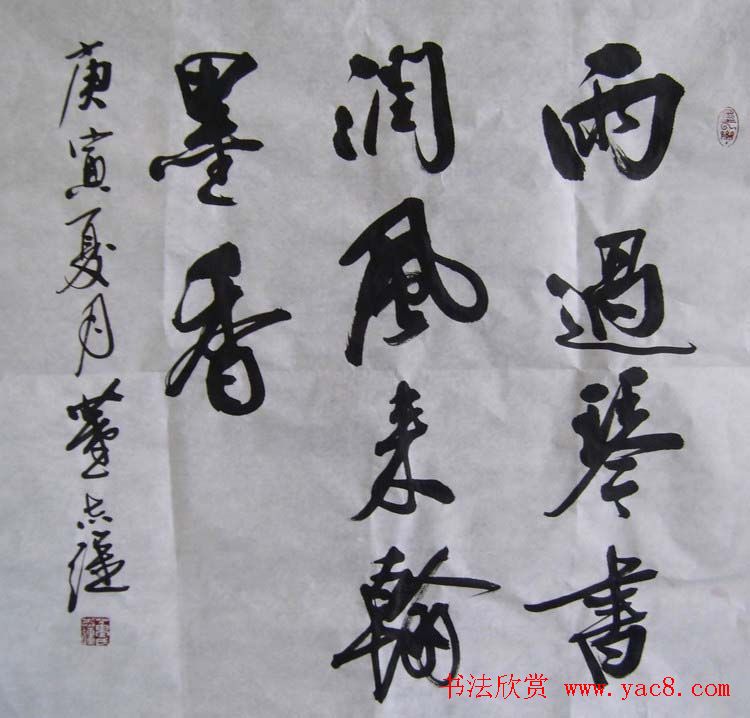 雨過琴書
潤風来翰
墨香
庚寅夏月董志强
书法欣赏 www.yac8.com